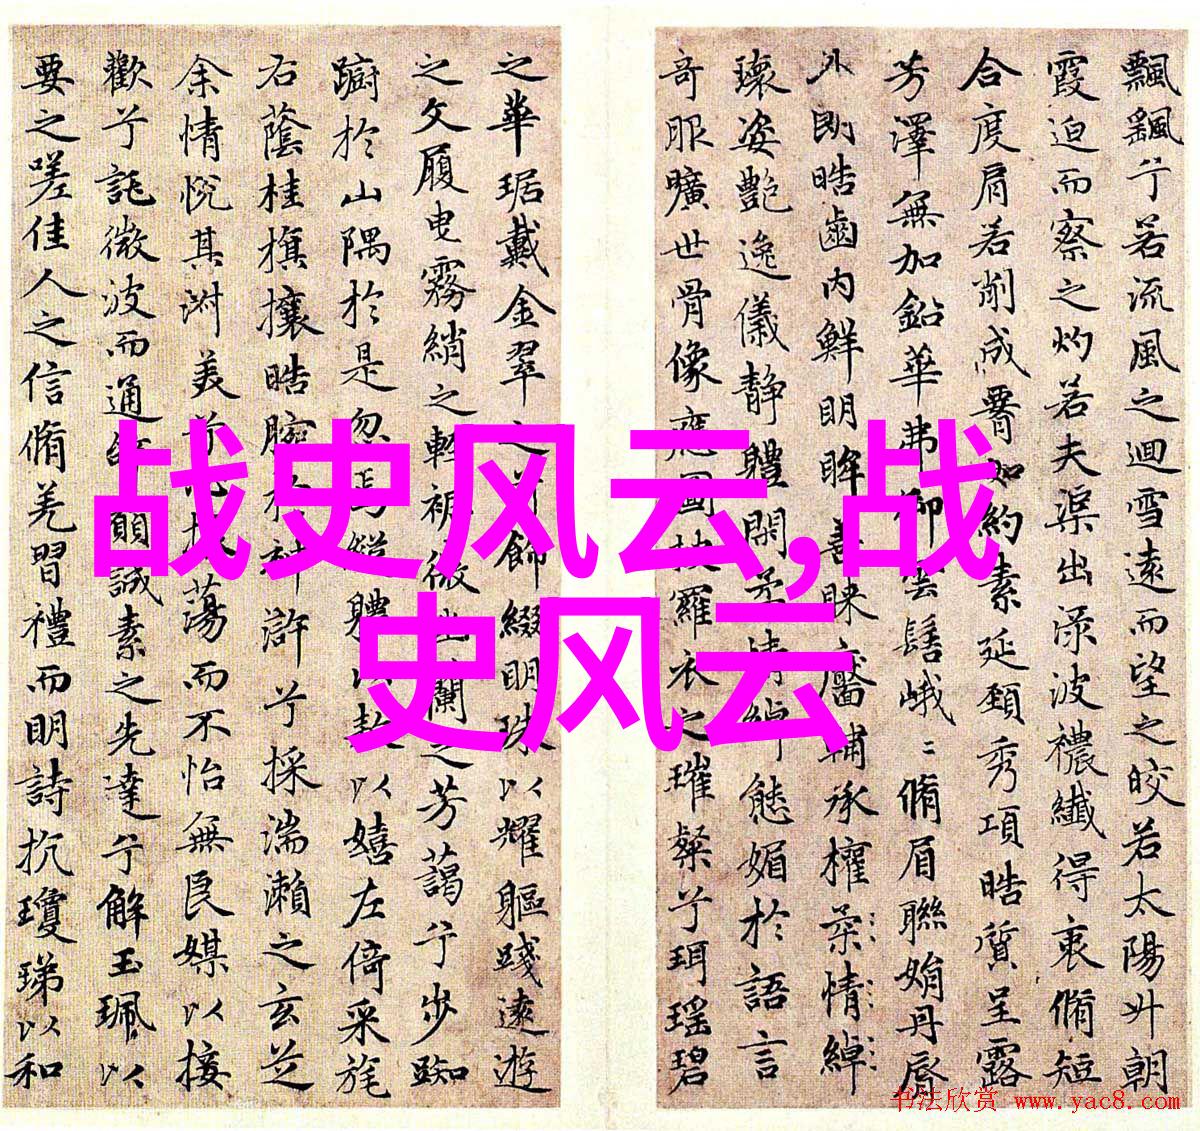 飄飖兮若流風之迴雪遠而望之皎若太陽升朝
霞迫而察之灼若夫渠出渌波禯纖得衷脩短
合度肩若削成署如約素延頸秀項皓質呈露
芳澤無加鉛華弗御雲髻峨〻脩眉聯娟丹脣
外朗皓齒內鮮明眸善睞靨輔承權柔情綽
瓌姿艶逸儀静體閑柔情綽態媚於語言
奇服曠世骨像應圖披羅衣之璀粲兮珥瑶碧
之華琚戴金翠之首飾綴明珠以耀軀踐遠遊
之文履曳霧綃之輕裾微幽蘭之芳藹兮步踟
躕於山隅於是忽焉縱體以遨以嬉左倚采旄
右蔭桂旗攘皓腕於神滸兮採湍瀨之玄芝
余情悅其淑美兮心振蕩而不怡無良媒以接
歡兮託微波而通辭願誠素之先達兮解玉珮以
要之嗟佳人之信脩羌習禮而明詩抗瓊珶以和
战史风云,战
史风云
书法欣赏 www.yac8.com